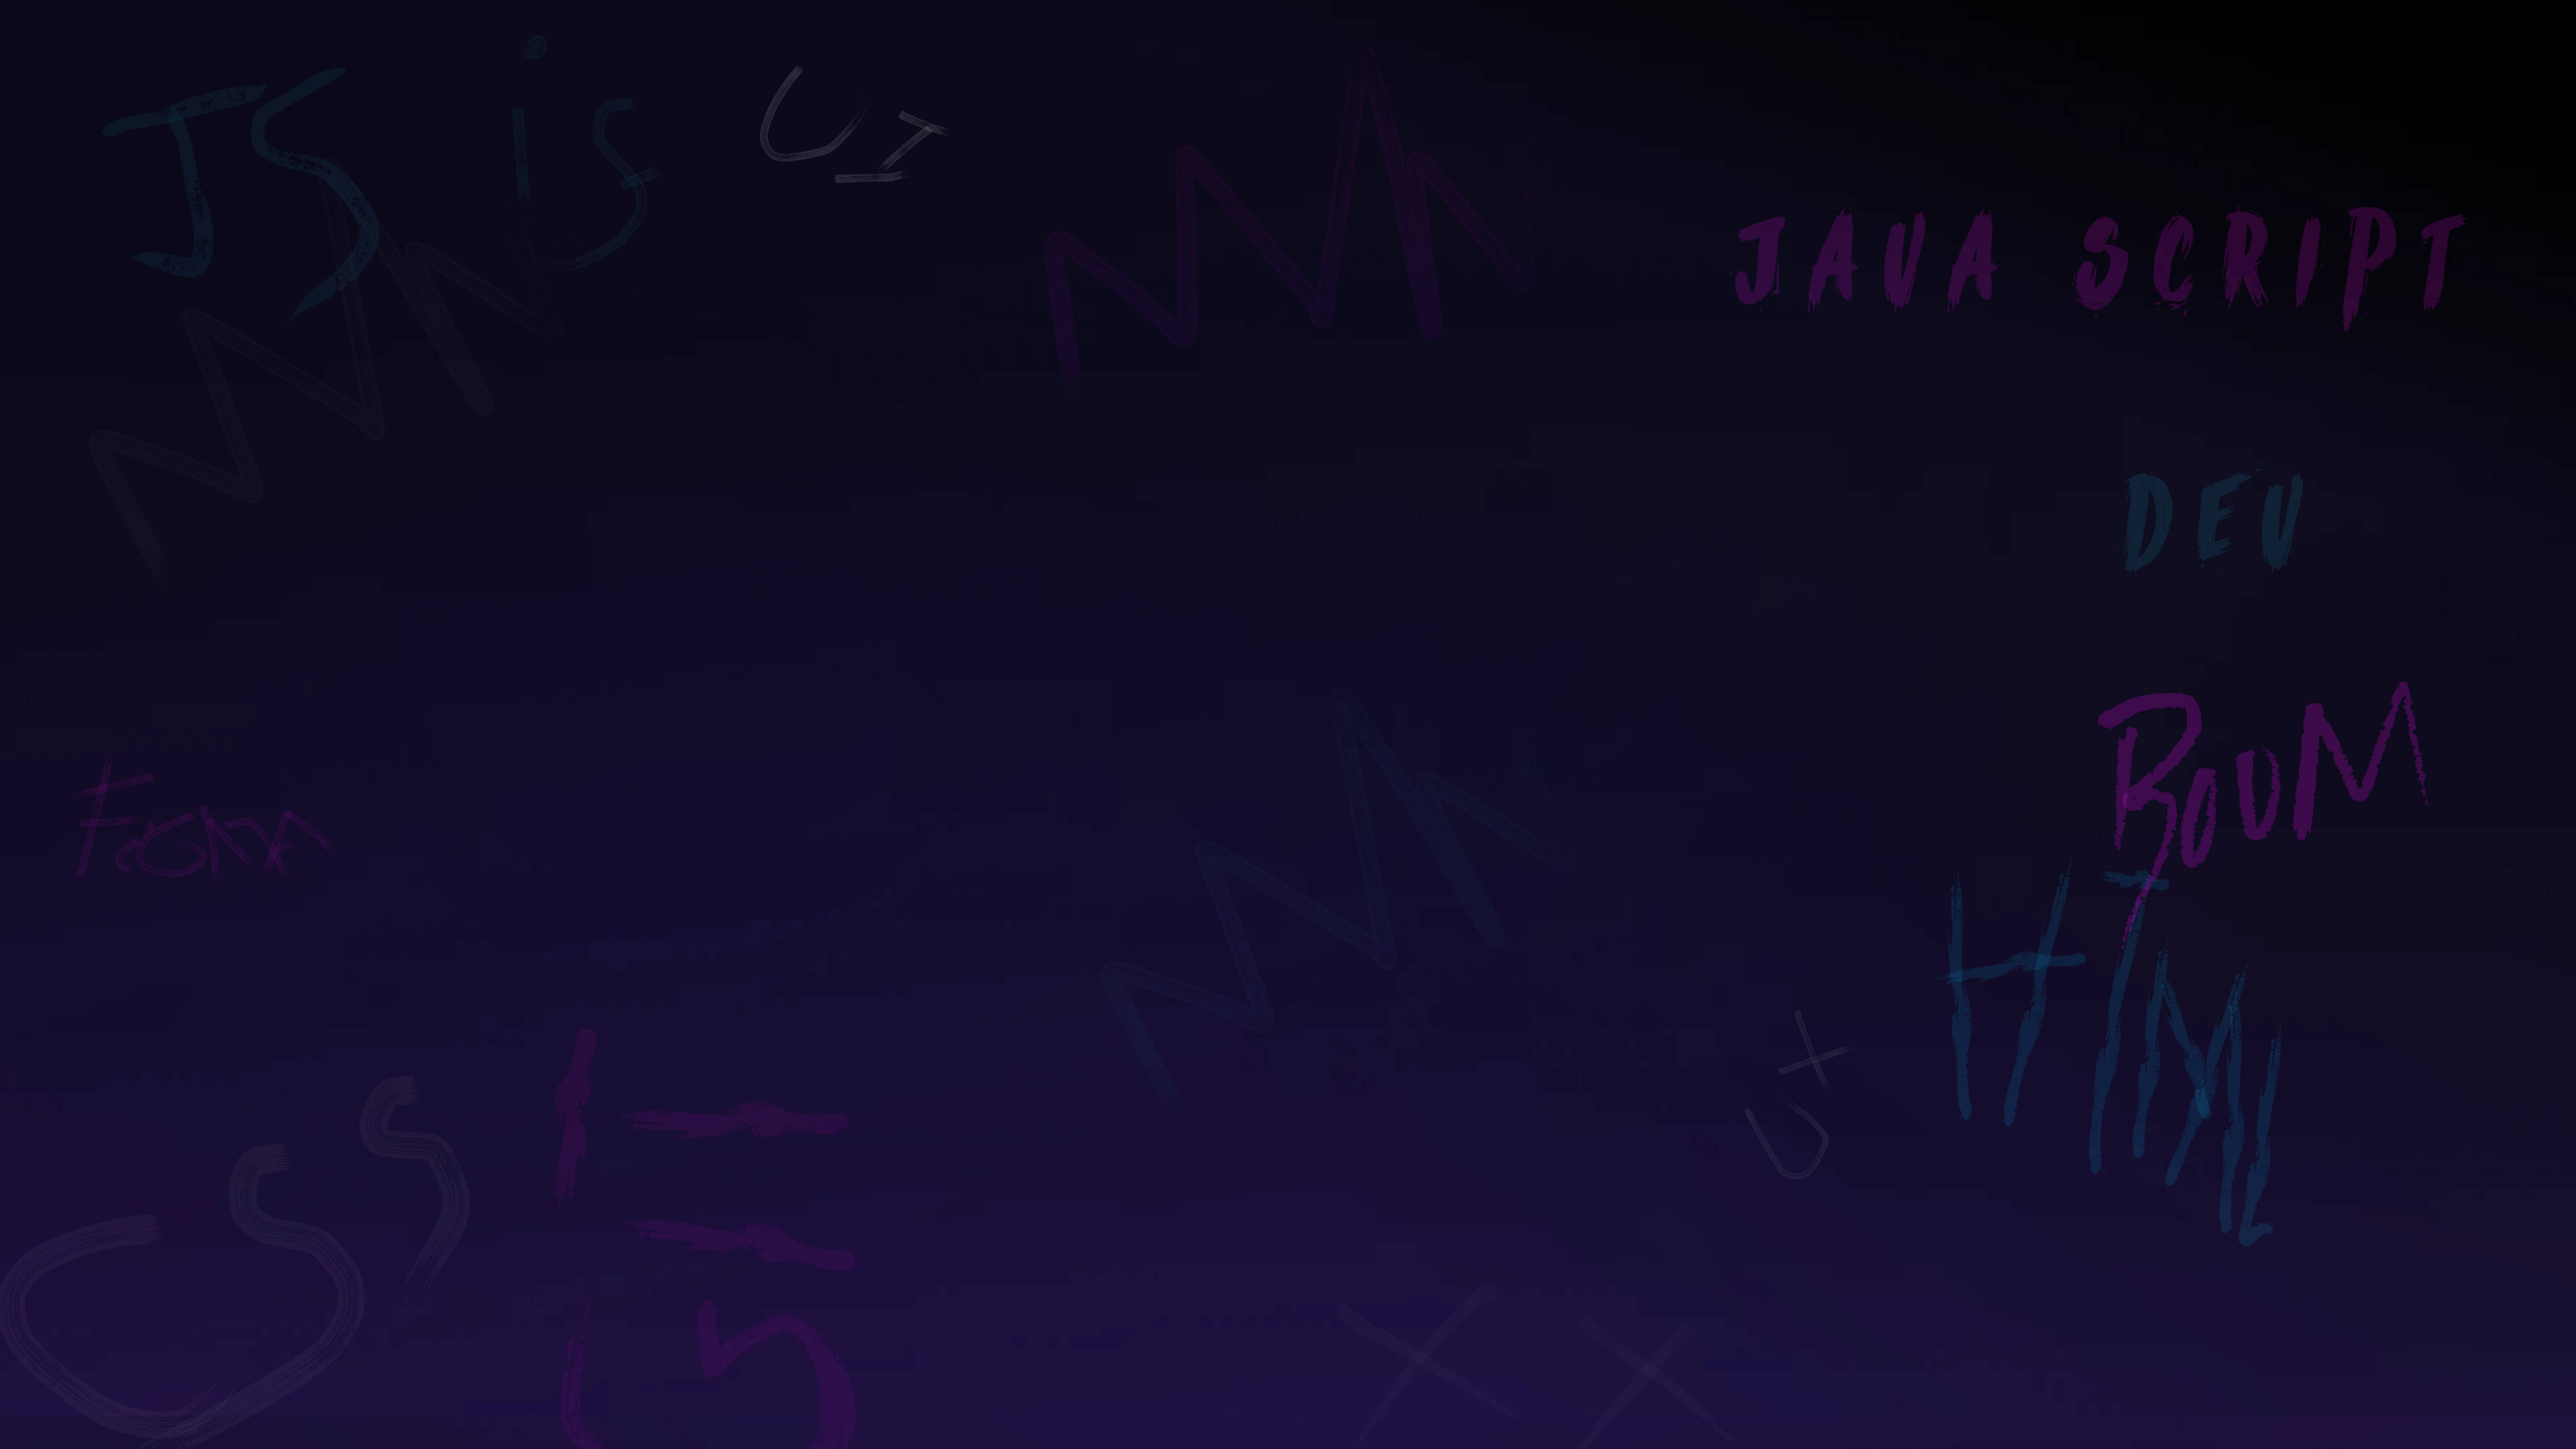 JS is
UI
JAVA SCRIPT
DEV
BOUM
Figma
HTML
UX
CSS
X X